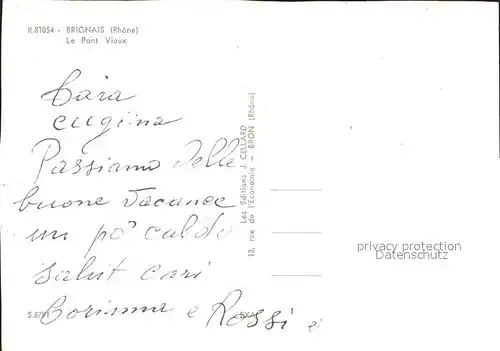 R.81054 - BRIGNAIS (Rhône)
Le Pont Vieux
Cara
cugina
Passiamo delle
buone vacance
un pò caldo
salut cari
Corinna e Rossi e
Les Editions J. CELLARD
13, rue de l'Economie - BRON (Rhône)
privacy protection
Datenschutz